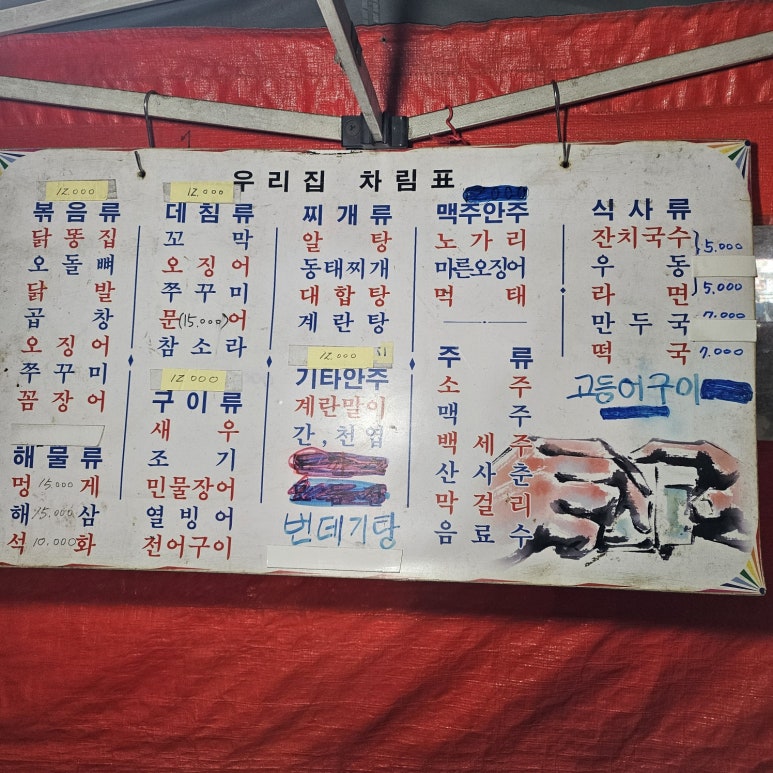 우리집 차림표
12.000
볶음류
닭똥집
오돌뼈
닭발
곱창
오징어
쭈꾸미
꼼장어
해물류
멍15.000게
해15.000삼
석10.000화
12.000
데침류
꼬막
오징어
쭈꾸미
문(15.000)어
참소라
12.000
구이류
새우
조기
민물장어
열빙어
전어구이
찌개류
알탕
동태찌개
대합탕
계란탕
12.000
기타안주
계란말이
간,천엽
번데기탕
맥주안주
노가리
마른오징어
먹태
주류
소주
맥주
백세주
산사춘
막걸리
음료수
식사류
잔치국수
우동
5.000
라면
5.000
만두국
7.000
떡국
7.000
고등어구이